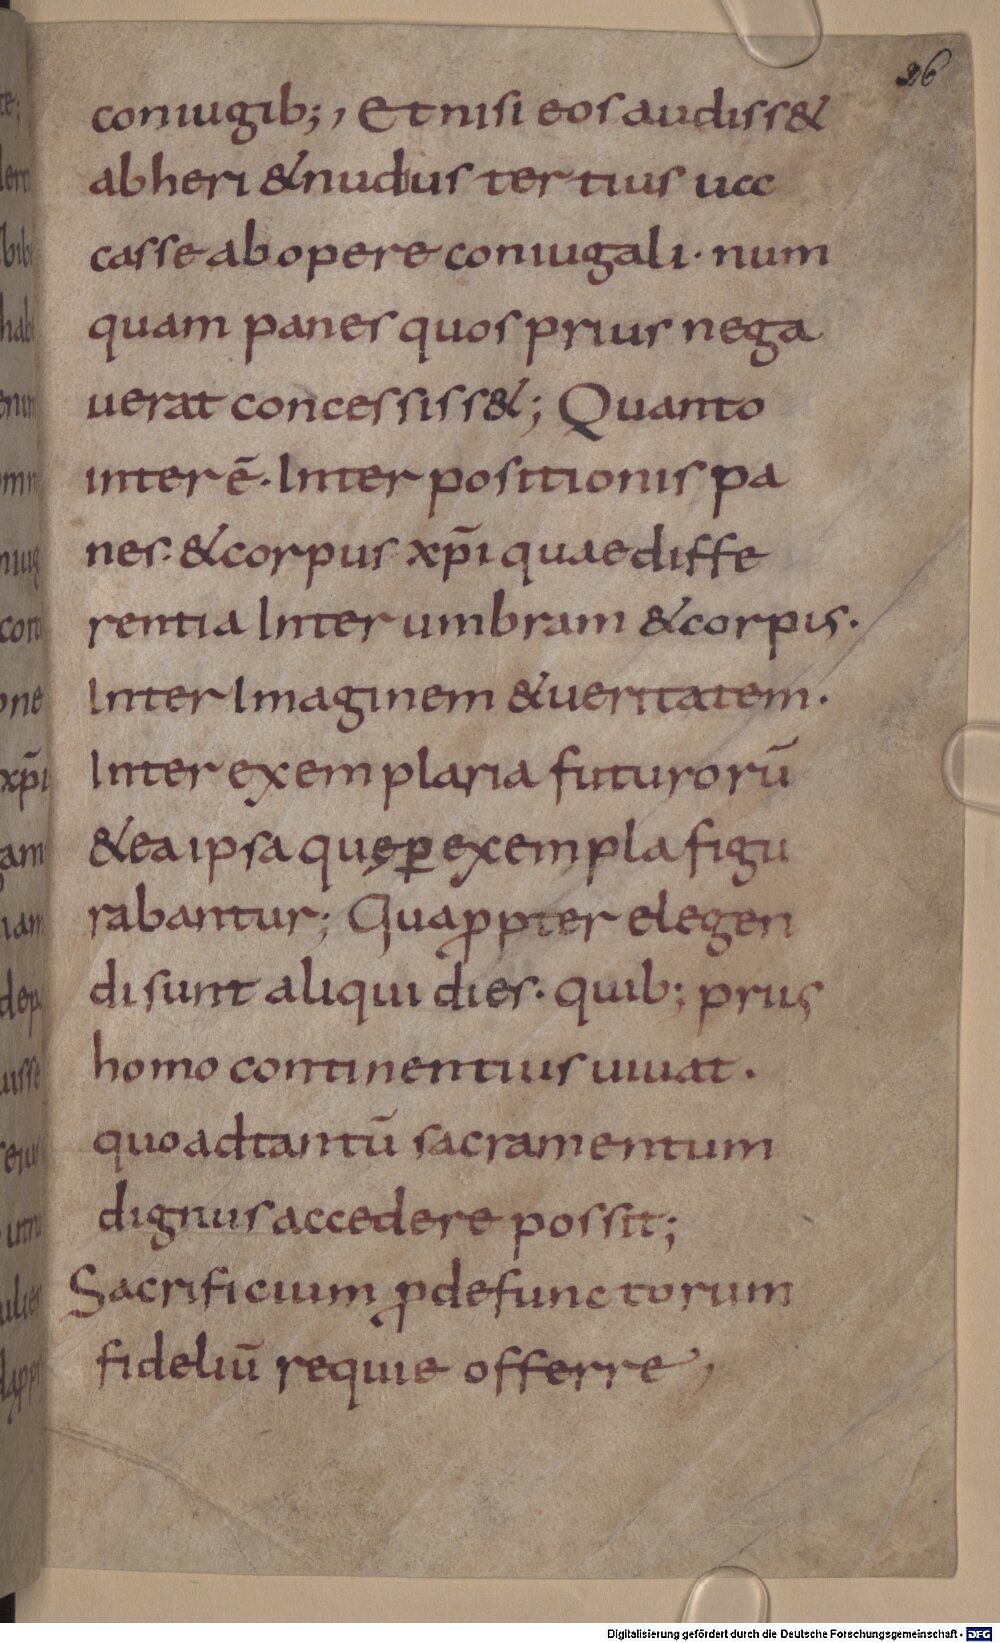 26
coniugib; , Et nisi eos audiss&
ab heri & nudius tertius ucc
casse ab opere coniugali · num
quam panes quos prius nega
uerat concessiss&; Quanto
inter ē · Inter positionis pa
nes · & corpus xp̄i quae diffe
rentia Inter umbram & corpus ·
Inter Imaginem & ueritatem ·
Inter exemplaria futurorū
& ea ipsa quę ꝑ exempla figu
rabantur; Quaꝓpter elegen
di sunt aliqui dies · quib; prius
homo continentius uiuat ·
quo ad tantū sacramentum
dignus accedere possit;
Sacrificium ꝓ defunctorum
fideliū requie offerre ,
Digitalisierung gefördert durch die Deutsche Forschungsgemeinschaft - DFG